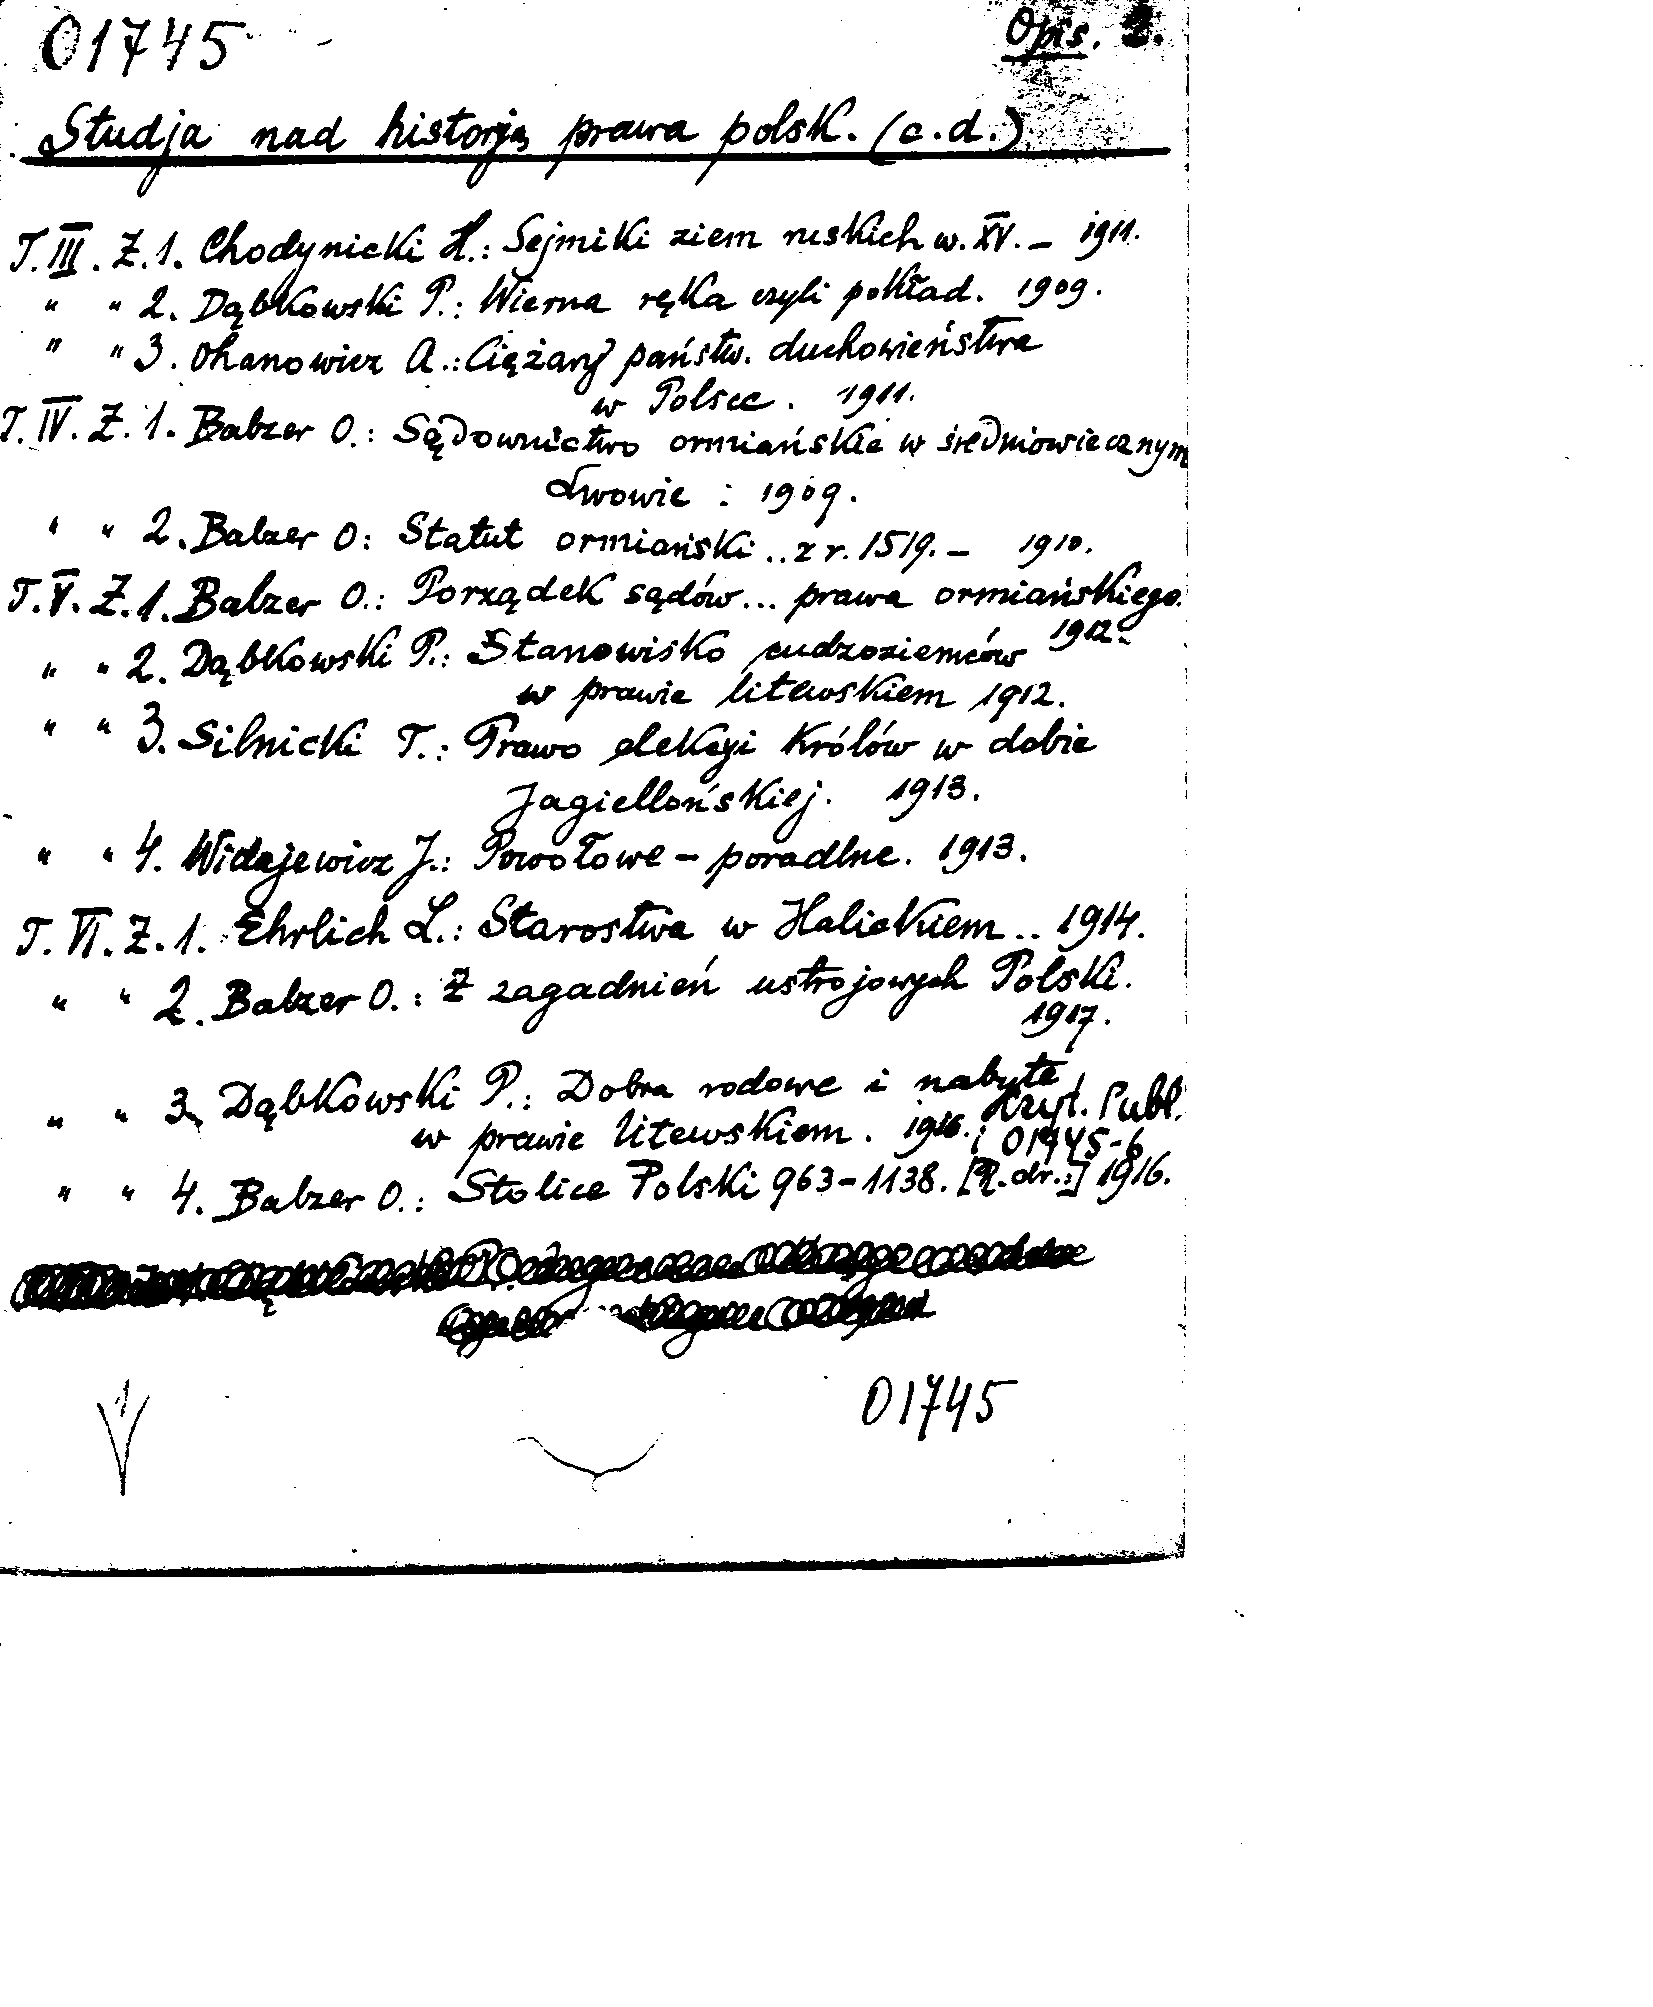 01745
Opis. 2.
Studja nad historją prawa polsk. (c.d.)
T. III. Z. 1. Chodynicki H.: Sejmiki ziem ruskich w. XV. – 1911.
" " 2. Dąbkowski P.: Wierna ręka czyli pokład. 1909.
" " 3. Ohanowicz A.: Ciężary państw. duchowieństwa
w Polsce. 1911.
T. IV. Z. 1. Balzer O.: Sądownictwo ormiańskie w średniowiecznym
Lwowie : 1909.
" " 2. Balzer O: Statut ormiański .. z r. 1519. – 1910.
T. V. Z. 1. Balzer O.: Porządek sądów... prawa ormiańskiego.
1912.
" " 2. Dąbkowski P.: Stanowisko cudzoziemców
w prawie litewskiem 1912.
" " 3. Silnicki T.: Prawo elekcyi królów w dobie
Jagiellońskiej. 1913.
" " 4. Widajewicz J.: Powołowe – poradlne. 1913.
T. VI. Z. 1. Ehrlich L.: Starostwa w Halickiem .. 1914.
" " 2. Balzer O.: Z zagadnień ustrojowych Polski.
1917.
" " 3. Dąbkowski P.: Dobra rodowe i nabyte
w prawie litewskiem. 1916. Czyt. Publ.
i 01745-6
" " 4. Balzer O.: Stolice Polski 963–1138. [R. dr.:] 1916.
01745